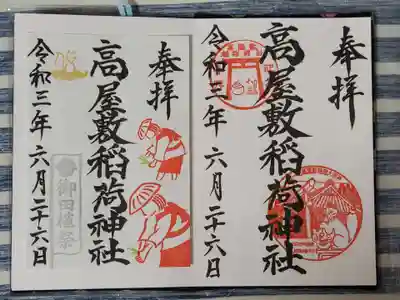 奉拝
高屋敷稲荷神社
令和三年 六月二十六日
奉拝
高屋敷稲荷神社
令和三年 六月二十六日
御田植祭